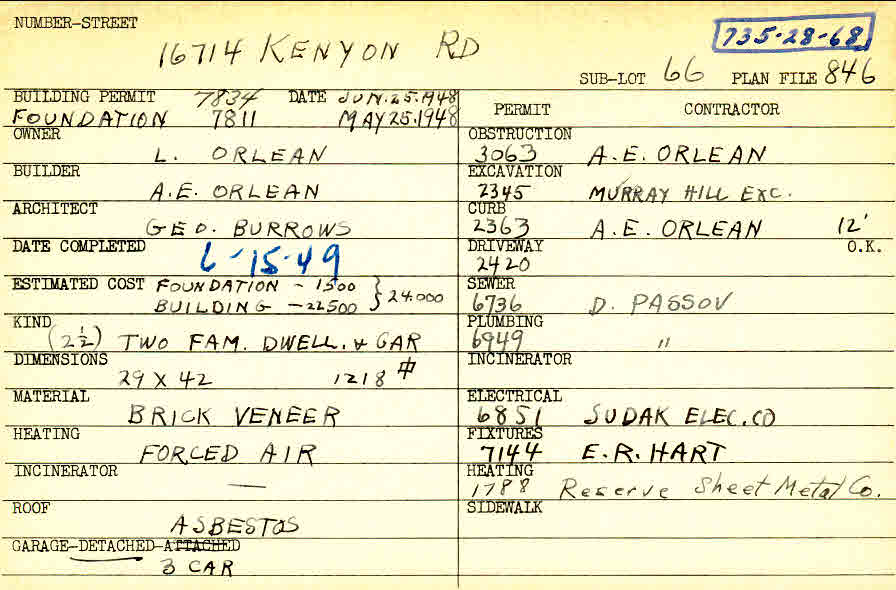 NUMBER-STREET
16714 KENYON RD
735-28-68
SUB-LOT 66 PLAN FILE 846
BUILDING PERMIT 7834 DATE JUN.25.1948
FOUNDATION 7811 MAY 25.1948
OWNER
L. ORLEAN
BUILDER
A.E. ORLEAN
ARCHITECT
GEO. BURROWS
DATE COMPLETED
6-15-49
ESTIMATED COST FOUNDATION - 1500
BUILDING - 22500 } 24.000
KIND
(2 1/2) TWO FAM. DWELL. & GAR
DIMENSIONS
29 X 42 1218 #
MATERIAL
BRICK VENEER
HEATING
FORCED AIR
INCINERATOR
—
ROOF
ASBESTOS
GARAGE-DETACHED-ATTACHED
3 CAR
PERMIT CONTRACTOR
OBSTRUCTION
3063 A.E. ORLEAN
EXCAVATION
2345 MURRAY HILL EXC.
CURB
2363 A.E. ORLEAN 12'
DRIVEWAY O.K.
2420
SEWER
6736 D. PASSOV
PLUMBING
6949 "
INCINERATOR
ELECTRICAL
6851 SUDAK ELEC. CO
FIXTURES
7144 E.R. HART
HEATING
1788 Reserve Sheet Metal Co.
SIDEWALK